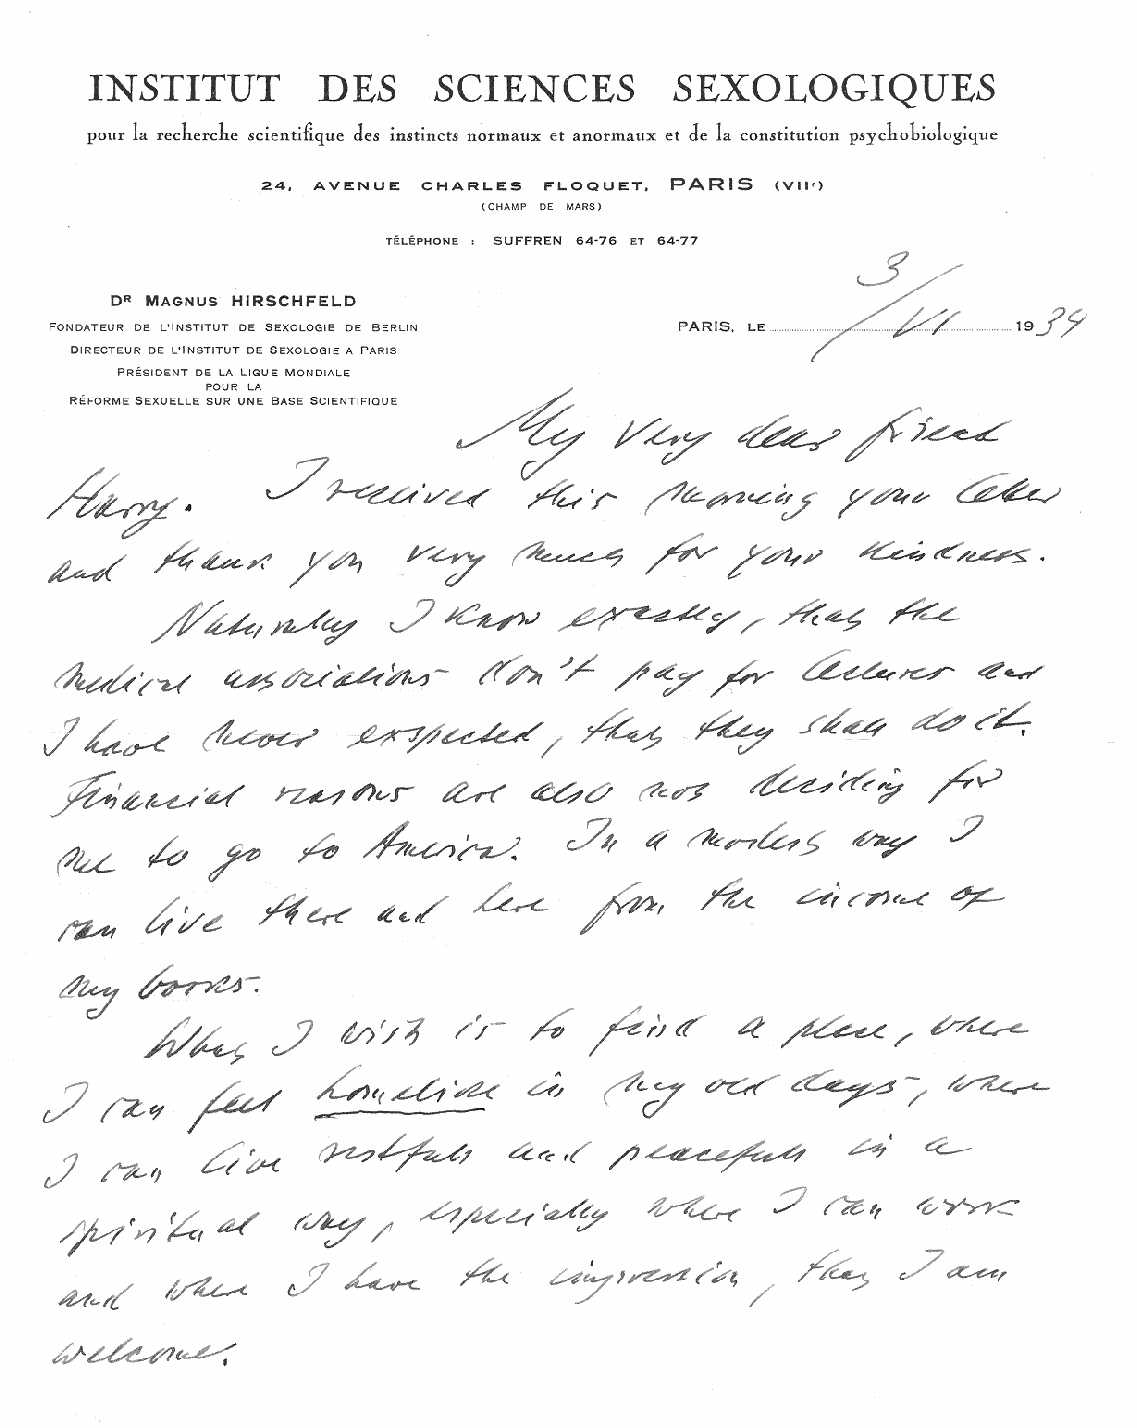 INSTITUT DES SCIENCES SEXOLOGIQUES
pour la recherche scientifique des instincts normaux et anormaux et de la constitution psychobiologique
24, AVENUE CHARLES FLOQUET, PARIS (VIIᵉ)
(CHAMP DE MARS)
TÉLÉPHONE : SUFFREN 64-76 ET 64-77
DR MAGNUS HIRSCHFELD
FONDATEUR DE L'INSTITUT DE SEXOLOGIE DE BERLIN
DIRECTEUR DE L'INSTITUT DE SEXOLOGIE A PARIS
PRÉSIDENT DE LA LIGUE MONDIALE
POUR LA
RÉFORME SEXUELLE SUR UNE BASE SCIENTIFIQUE
PARIS, LE 3/VI 1934
My very dear friend
Harry. I received this morning your letter
and thank you very much for your kindness.
Naturally I know exactly, that the
medical associations don't pay for lectures and
I have never exspected, that they shall do it.
Financial reasons are also not deciding for
me to go to America. In a modest way I
can live there and here from the income of
my books.
What I wish is to find a place, where
I can feel homelike in my old days, where
I can live restfull and peacefull in a
spiritual way, especially where I can work
and where I have the impression, that I am
welcome.